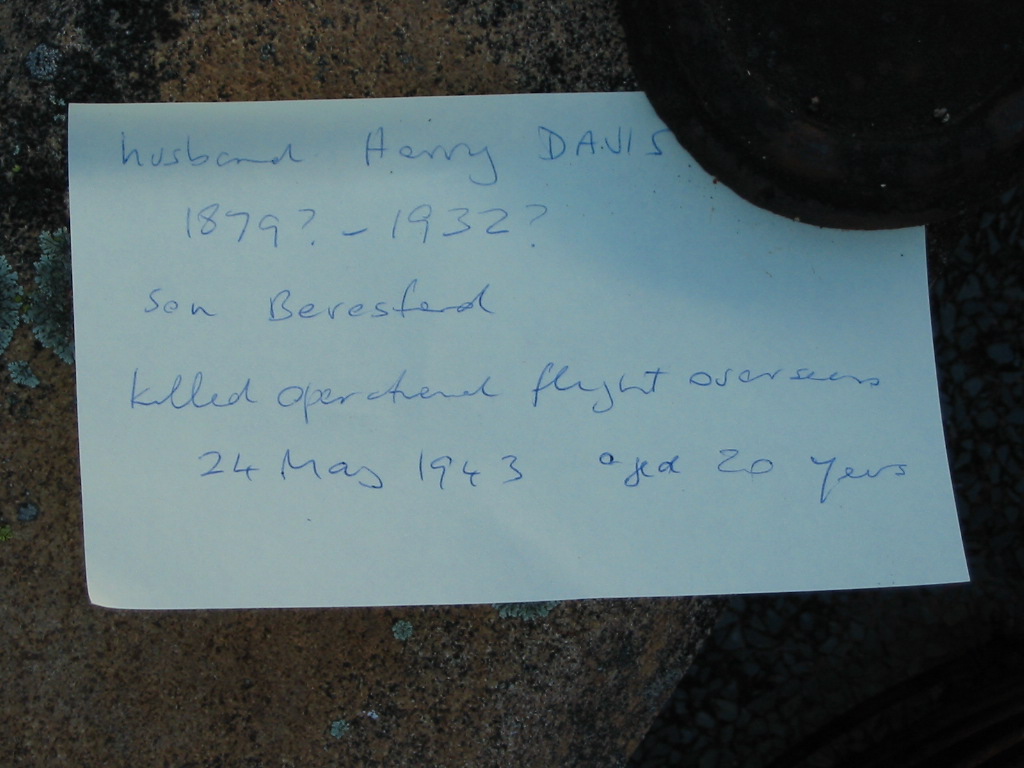 husband Harry DAVIS
1879? - 1932?
Son Beresford
killed operational flight overseas
24 May 1943 aged 20 years